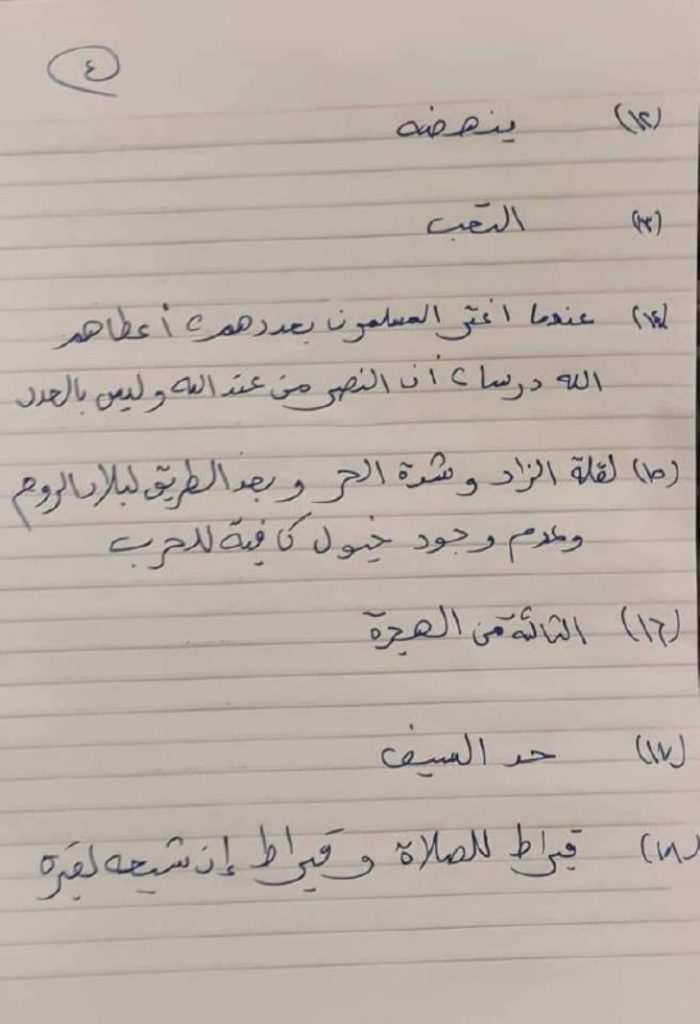 ٤
(١٢) ينهضنه
(١٣) التعب
(١٤) عندما اغتر المسلمون بعددهم، أعطاهم
الله درسا، أن النصر من عند الله وليس بالعدد
(١٥) لقلة الزاد وشدة الحر وبعد الطريق لبلاد الروم
وعدم وجود خيول كافية للحرب
(١٦) الثالثة من الهجرة
(١٧) حد السيف
(١٨) قيراط للصلاة وقيراط إن شيعه لقبره